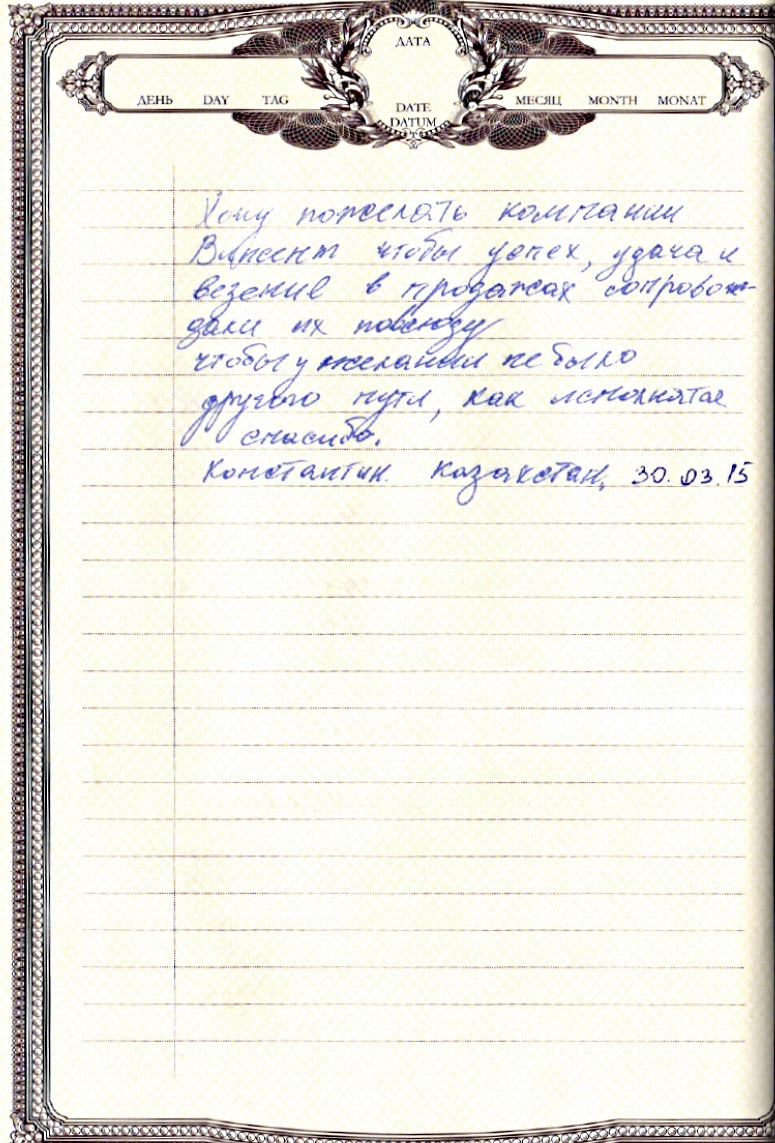 ДАТА
ДЕНЬ DAY TAG
МЕСЯЦ MONTH MONAT
DATE
DATUM
Хочу пожелать компании
чтобы успех, удача и
везение в продажах сопровож-
дали их повсюду
чтобы у желаний не было
другого пути, как исполнятся
спасибо.
Константин. Казахстан, 30.03.15